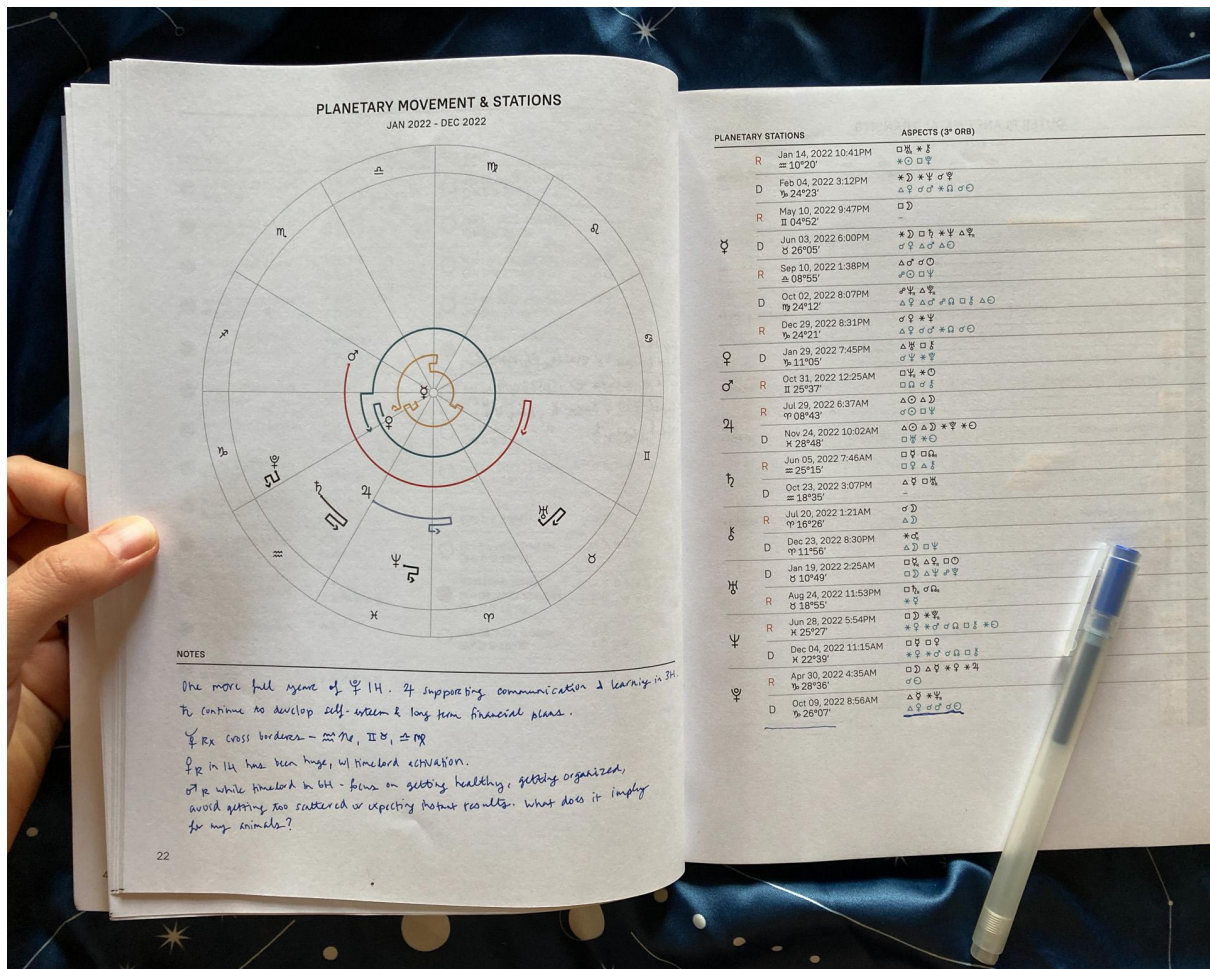 PLANETARY MOVEMENT & STATIONS
JAN 2022 - DEC 2022
♎ ♍
♏ ♌
♐ ♋
♑ ♊
♒ ♉
♓ ♈
♂ ☿ ♀
♇ ♄ ♃ ♅ ♆
NOTES
One more full year of ♀ 1H. ♃ supporting communication & learning in 3H.
♄ continue to develop self-esteem & long term financial plans.
☿ Rx cross borders - ♒ ♑, ♊ ♉, ♎ ♍
♀ R in 1H has been huge, w/ timelord activation.
♂ R while timelord in 6H - focus on getting healthy, getting organized,
avoid getting too scattered or expecting instant results. What does it imply
for my animals?
22
PLANETARY STATIONS ASPECTS (3° ORB)
☿
R Jan 14, 2022 10:41PM □ ♅ ⚹ ⚷
♒ 10°20' ⚹ ☉ □ ♆
D Feb 04, 2022 3:12PM ⚹ ☽ ⚹ ♆ ☌ ♇
♑ 24°23' △ ♀ ☌ ♂ ⚹ ☊ ☌
R May 10, 2022 9:47PM □ ☽
♊ 04°52' –
D Jun 03, 2022 6:00PM ⚹ ☽ □ ♄ ⚹ ♆ △ ♇
♉ 26°05' ☌ ♀ △ ♂ △
R Sep 10, 2022 1:38PM △ ♂ ☌
♎ 08°55' ☍ ☉ □ ♆
D Oct 02, 2022 8:07PM ☍ ♆ △ ♇
♍ 24°12' △ ♀ △ ♂ ☍ ☊ □ ⚷ △
R Dec 29, 2022 8:31PM ☌ ♀ ⚹ ♆
♑ 24°21' △ ♀ ☌ ♂ ⚹ ☊ ☌
♀
D Jan 29, 2022 7:45PM △ ♅ □ ⚷
♑ 11°05' ☌ ♆ ⚹ ♇
♂
R Oct 31, 2022 12:25AM □ ♆ ⚹
♊ 25°37' □ ☊ ☌ ⚷
♃
R Jul 29, 2022 6:37AM △ ☉ △ ☽
♈ 08°43' ☌ ☉ □ ♆
D Nov 24, 2022 10:02AM △ ☉ △ ☽ ⚹ ♇ ⚹
♓ 28°48' □ ♅ ⚹
♄
R Jun 05, 2022 7:46AM □ ☿ □ ☊
♒ 25°15' □ ♀ △ ⚷
D Oct 23, 2022 3:07PM △ ☿ □ ♅
♒ 18°35' –
⚷
R Jul 20, 2022 1:21AM ☌ ☽
♈ 16°26' △ ☽
D Dec 23, 2022 8:30PM ⚹ ♂
♈ 11°56' △ ☽ □ ♆
♅
D Jan 19, 2022 2:25AM □ ☿ △ ♀ □
♉ 10°49' □ ☽ △ ♆ ☍ ♇
R Aug 24, 2022 11:53PM □ ♄ ☌ ☊
♉ 18°55' ⚹ ☿
♆
R Jun 28, 2022 5:54PM □ ☽ ⚹ ♇
♓ 25°27' ⚹ ♀ ⚹ ♂ ☌ ☊ □ ⚷ ⚹
D Dec 04, 2022 11:15AM □ ☿ □ ♀
♓ 22°39' ⚹ ♀ ⚹ ♂ ☌ ☊ □ ⚷
♇
R Apr 30, 2022 4:35AM □ ☽ △ ☿ ⚹ ♀ ⚹ ♃
♑ 28°36' ☌
D Oct 09, 2022 8:56AM △ ☿ ⚹ ♆
♑ 26°07' △ ♀ ☌ ♂ ☌